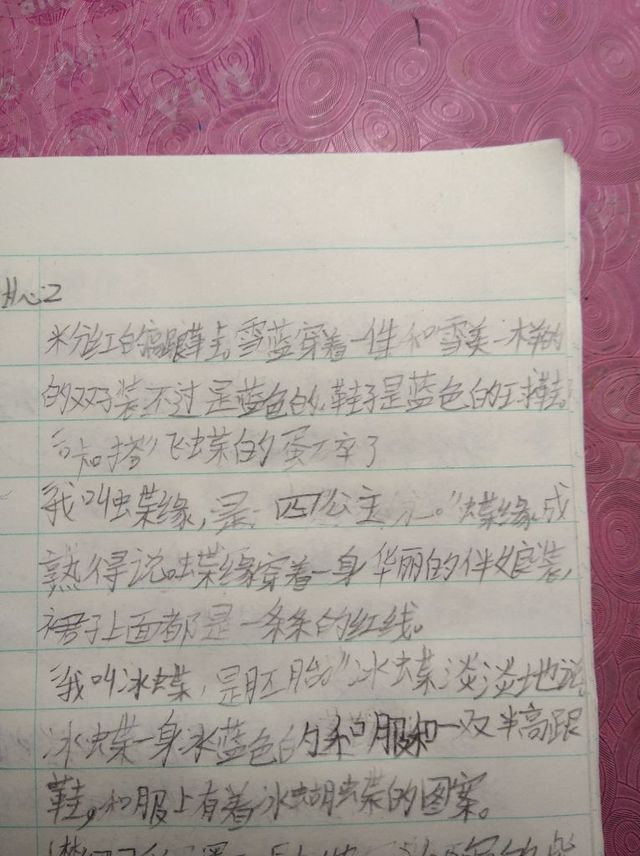 粉红的高跟鞋。雪蓝穿着一件和雪美一样的
的双子装不过是蓝色的,鞋子是蓝色的
飞蝶的蛋
我叫蝶缘,是四公主。"蝶缘成
熟得说蝶缘穿着一身华丽的伴娘装,
裙子上面都是一条条的红线。
我叫冰蝶,是胚胎"冰蝶淡淡地说
冰蝶一身冰蓝色的和服和一双半高跟
鞋,和服上有着冰蝴蝶的图案。